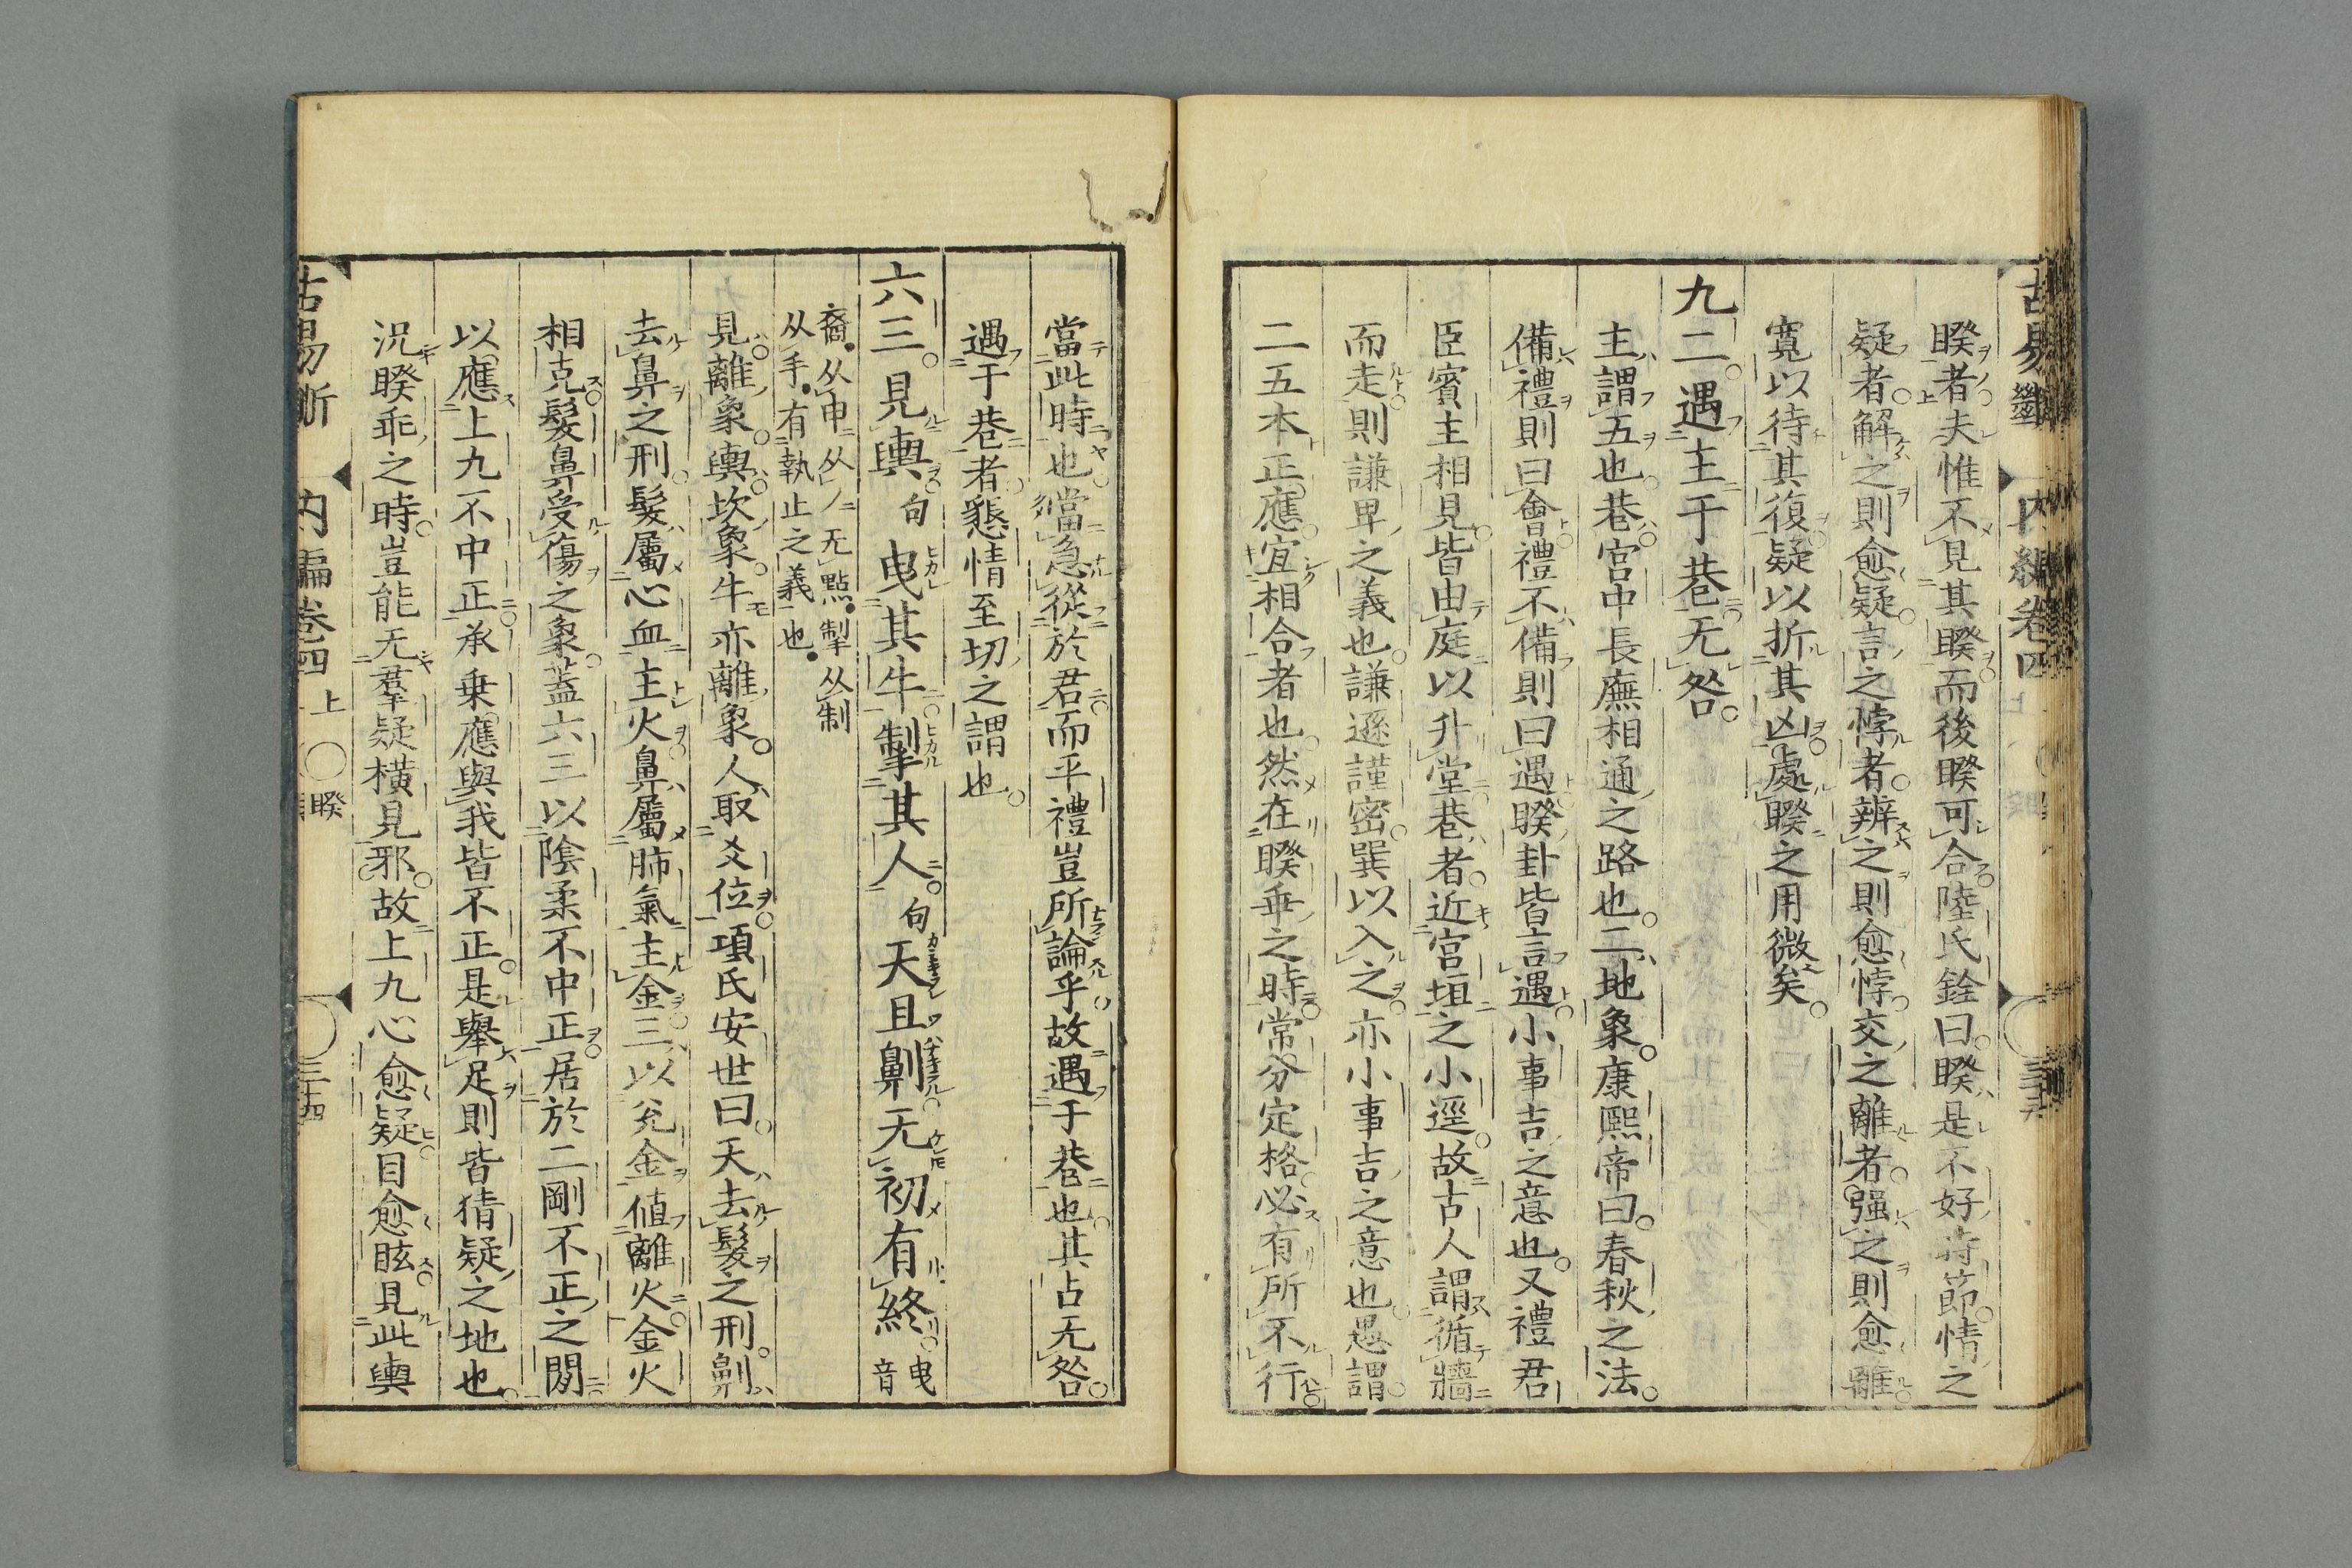 睽者夫惟不見其睽而後睽可合陸氏銓曰睽是不好時節情之
疑者解之則愈疑言之悖者辨之則愈悖交之離者强之則愈離
寬以待其復疑以折其凶處睽之用微矣
九二遇主于巷无咎
主謂五也巷宮中長廡相通之路也二地象康熙帝曰春秋之法
備禮則曰會禮不備則曰遇睽卦皆言遇小事吉之意也又禮君
臣賓主相見皆由庭以升堂巷者近宮垣之小逕故古人謂循牆
而走則謙卑之義也謙遜謹密巽以入之亦小事吉之意也愚謂
二五本正應宜相合者也然在睽乖之時常分定格必有所不行
當此時也當急從於君而平禮豈所論乎故遇于巷也其占无咎
遇于巷者懇情至切之謂也
六三見輿句曳其牛掣其人句天且劓无初有終曳音
裔从申从丿无點掣从制
从手有執止之義也
見離象輿坎象牛亦離象人取爻位項氏安世曰天去髮之刑劓
去鼻之刑髮屬心血主火鼻屬肺氣主金三以兊金値離火金火
相克髮鼻受傷之象葢六三以陰柔不中正居於二剛不正之閒
以應上九不中正承乗應與我皆不正是舉足則皆猜疑之地也
況睽乖之時豈能无羣疑橫見邪故上九心愈疑目愈眩見此輿
古易斷 内編卷四 上 睽 三十四